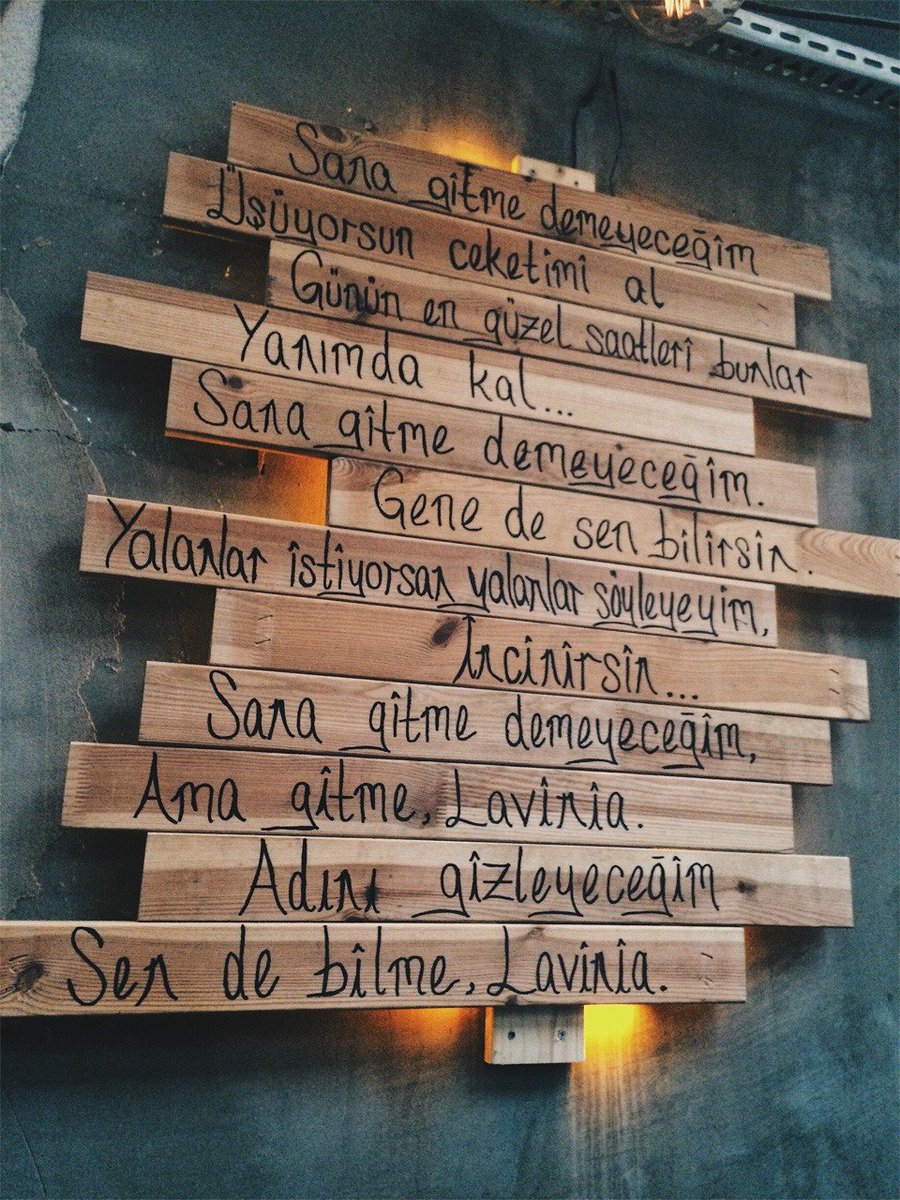 Sana gitme demeyeceğim
Üşüyorsun ceketimi al
Günün en güzel saatleri bunlar
Yanımda kal...
Sana gitme demeyeceğim.
Gene de sen bilirsin.
Yalanlar istiyorsan yalanlar söyleyeyim,
İncinirsin...
Sana gitme demeyeceğim,
Ama gitme, Lavinia.
Adını gizleyeceğim
Sen de bilme, Lavinia.